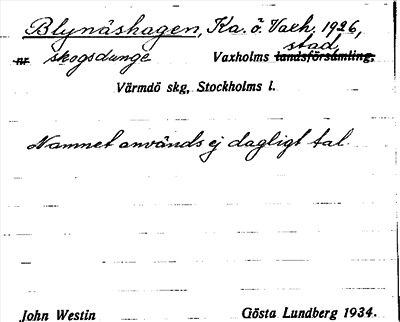 Blynäshagen, Ka. ö. Vaxh. 1926,
stad
nr skogsdunge Vaxholms landsförsamling,
Värmdö skg, Stockholms l.
Namnet används ej dagligt tal.
John Westin Gösta Lundberg 1934.